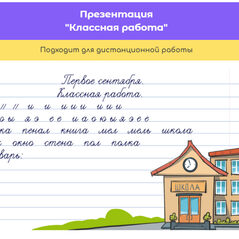 Презентация
"Классная работа"
Подходит для дистанционной работы
Первое сентября.
Классная работа.
и и ии и ии и
ы яэ её
пенал книга мел моль школа
окно стена пол полка
варь:
ШКОЛА